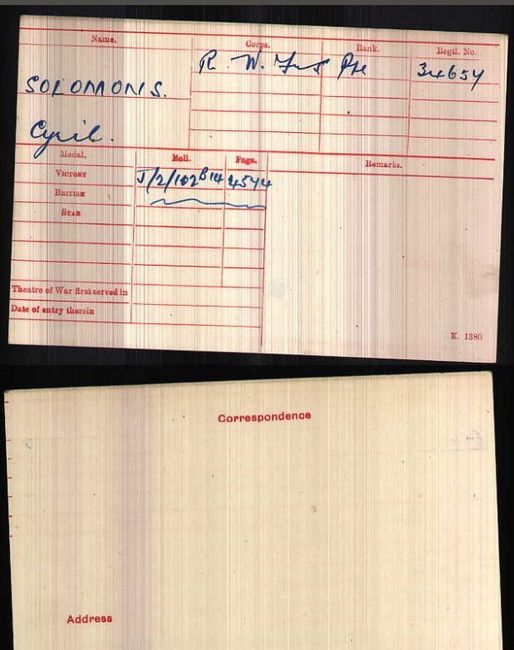 Name. Corps. Rank. Regtl. No.
R. W. Fus Pte 34654
SOLOMONS.
Cyril.
Medal. Roll. Page. Remarks.
VICTORY J/2/102 B14 4544
BRITISH
STAR
Theatre of War first served in
Date of entry therein
K. 1380
Correspondence
Address